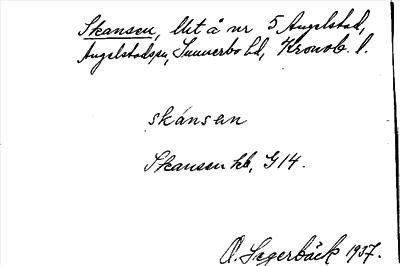 Skansen, lht å nr 5 Angelstad,
Angelstads sn, Sunnerbo hd, Kronob. l.
skánsen
Skansen hb, G 14.
O. Segerbäck 1937.